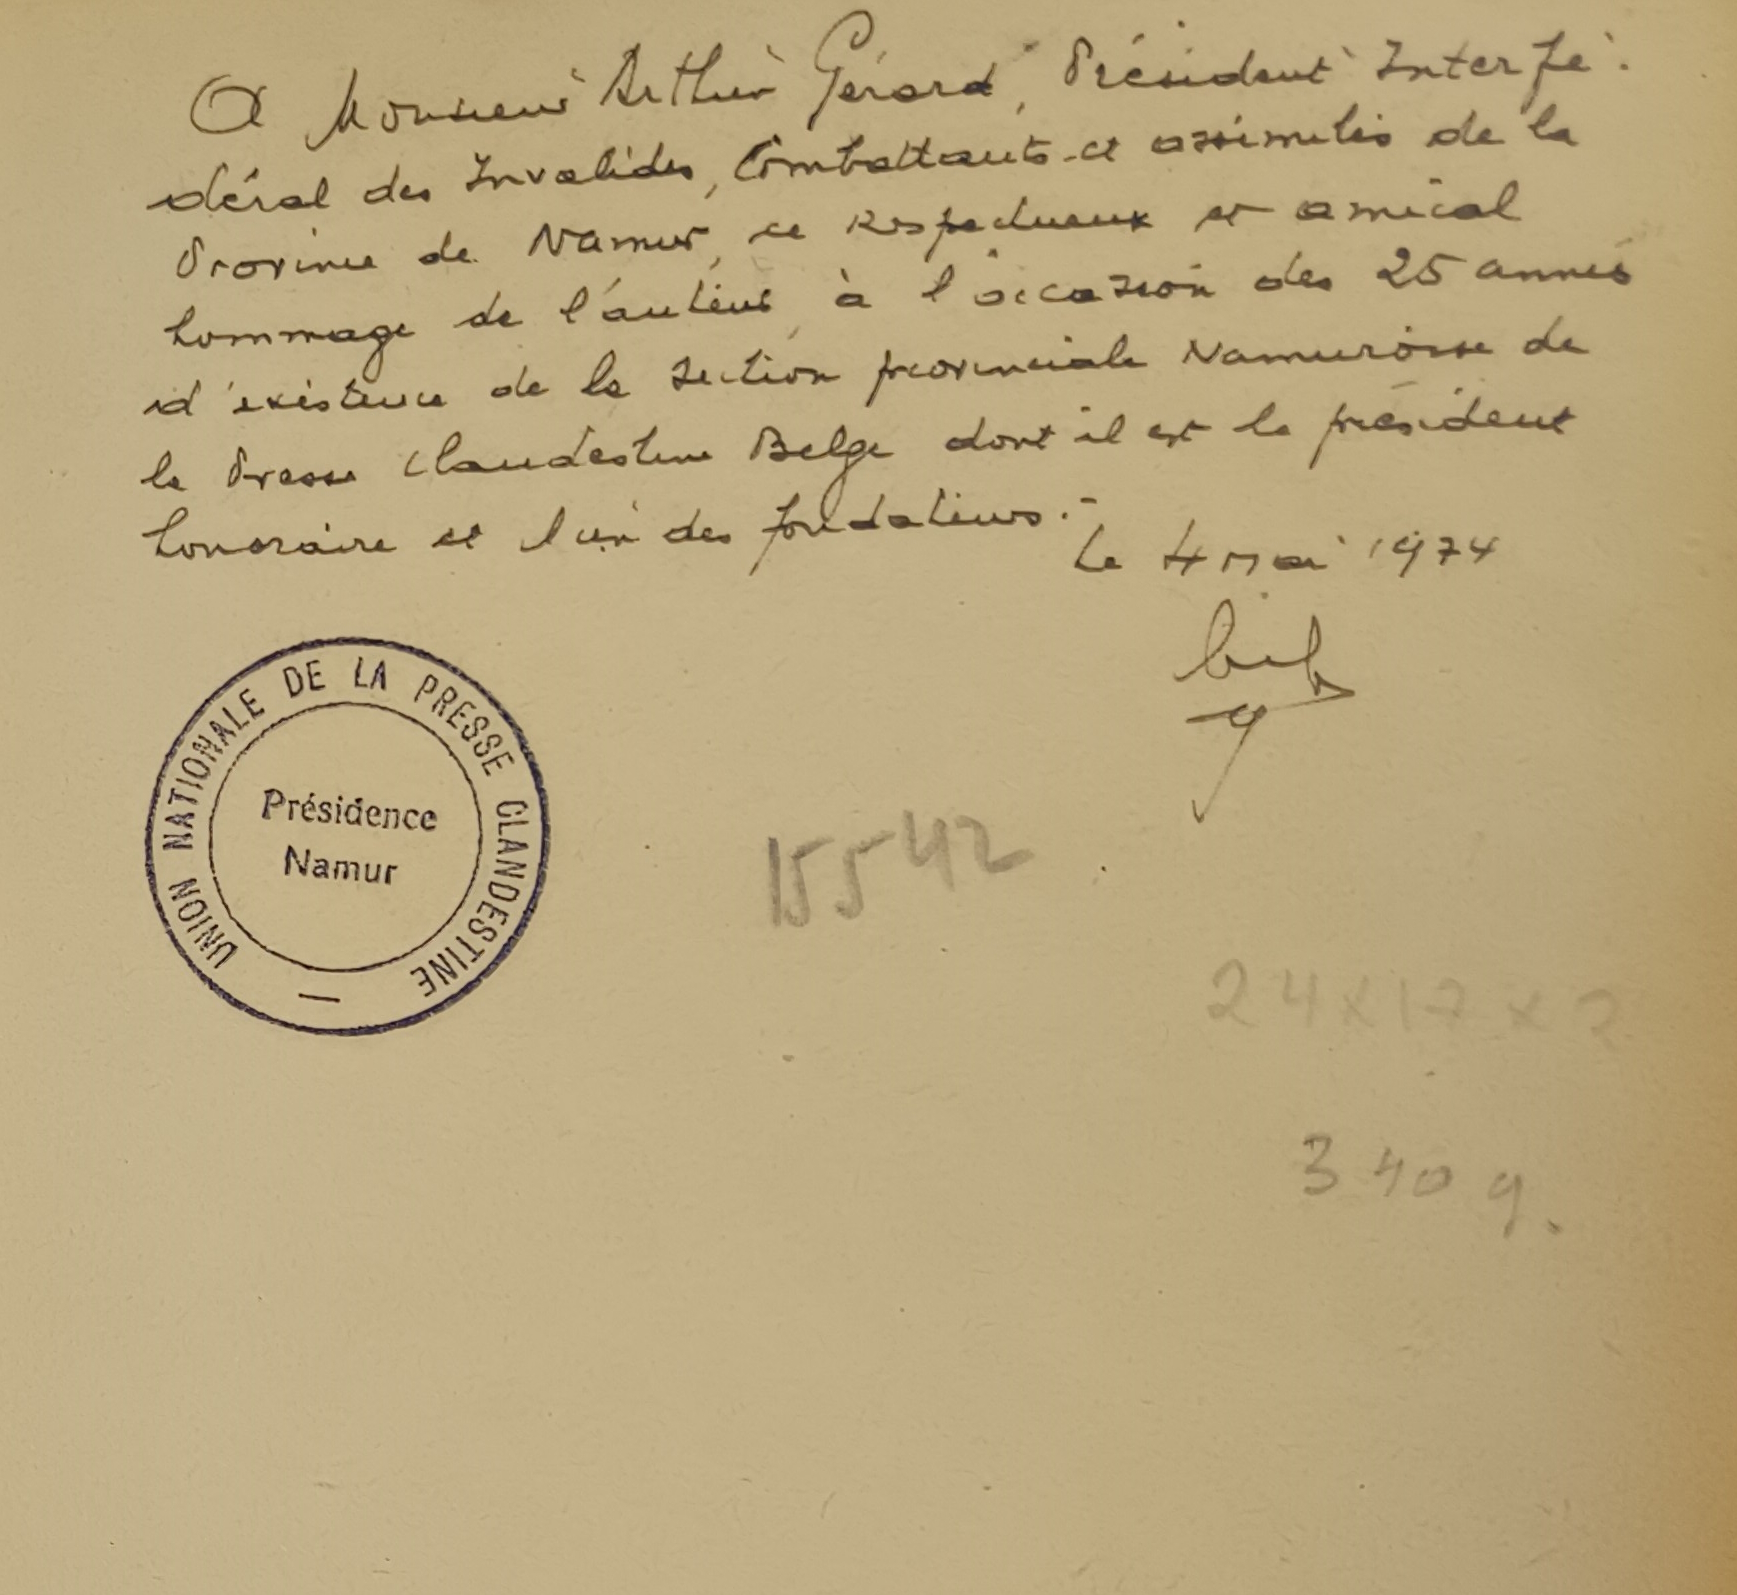 A Monsieur Arthur Gérard, Président Interfé-
déral des Invalides, Combattants et assimilés de la
Province de Namur, ce respectueux et amical
hommage de l'auteur, à l'occasion des 25 années
d'existence de la section provinciale Namuroise de
la Presse Clandestine Belge dont il est le président
honoraire et l'un des fondateurs.-
Le 4 Mai 1974
UNION NATIONALE DE LA PRESSE CLANDESTINE —
Présidence
Namur
15542
24x17x2
340 g.